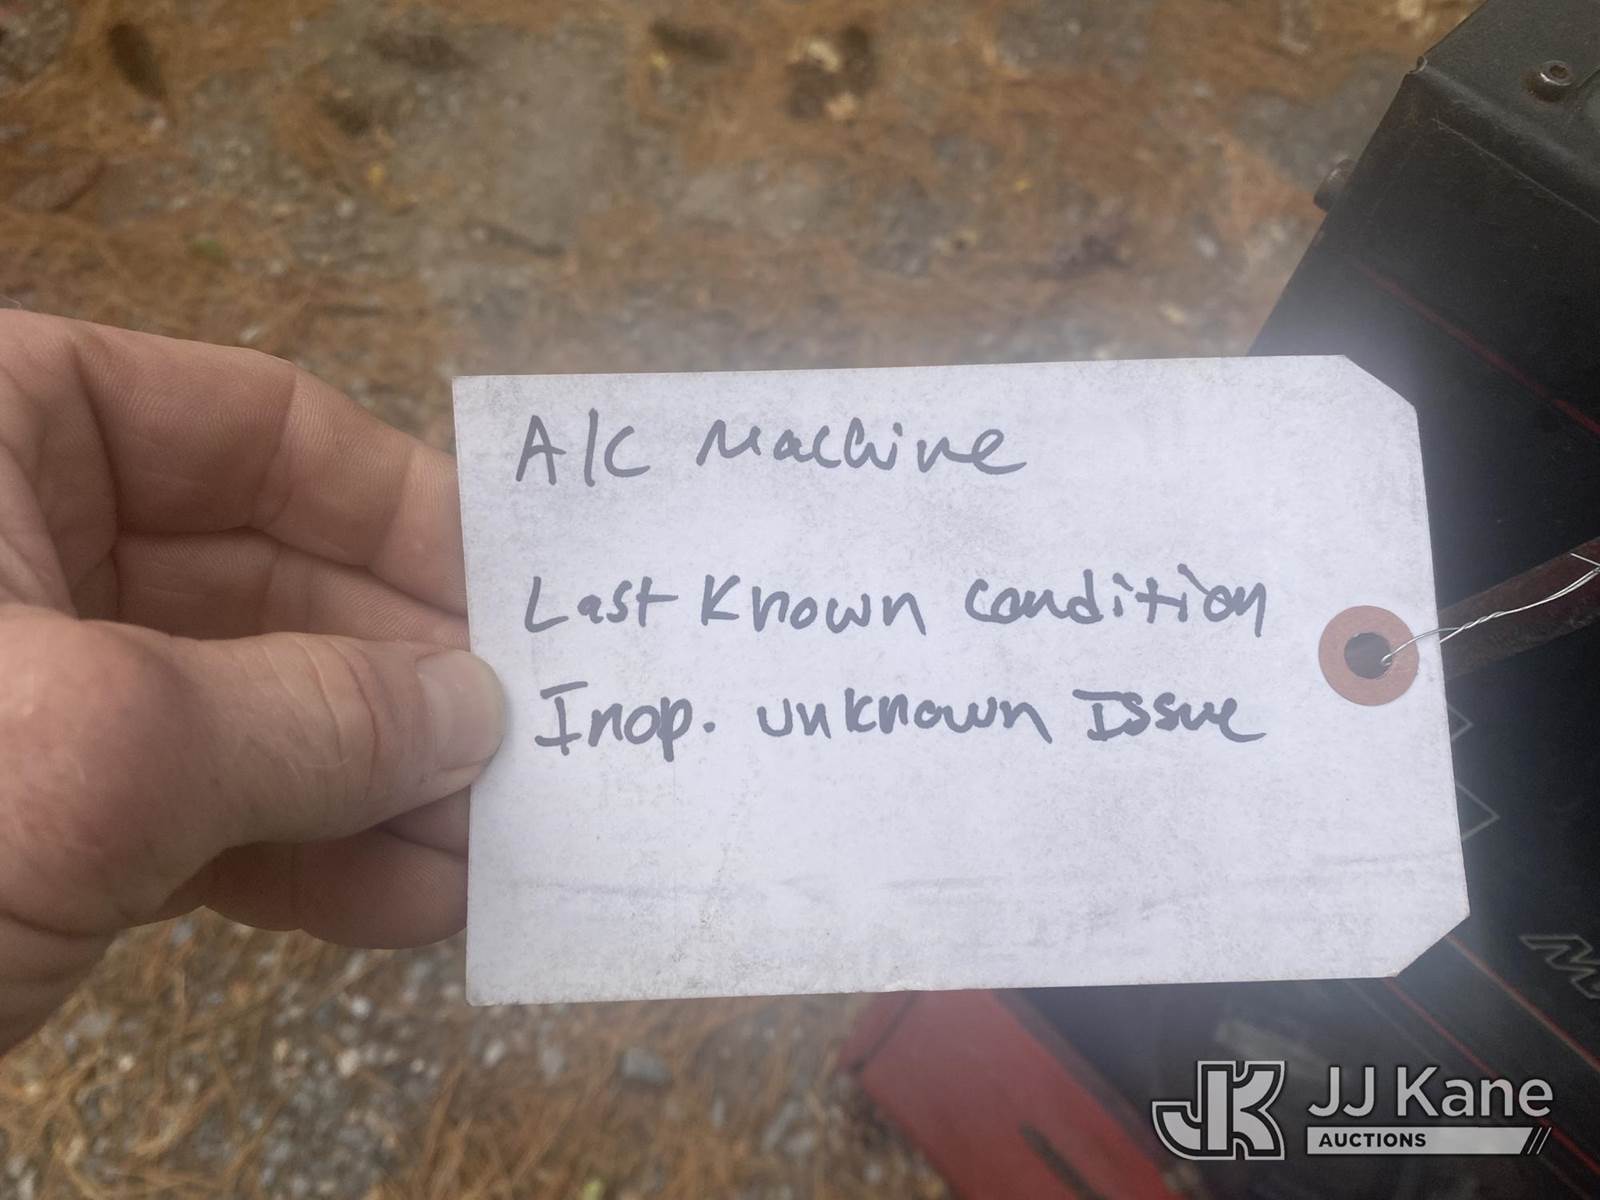 A/C Machine
Last Known Condition
Inop. Unknown Issue
JJ Kane
AUCTIONS